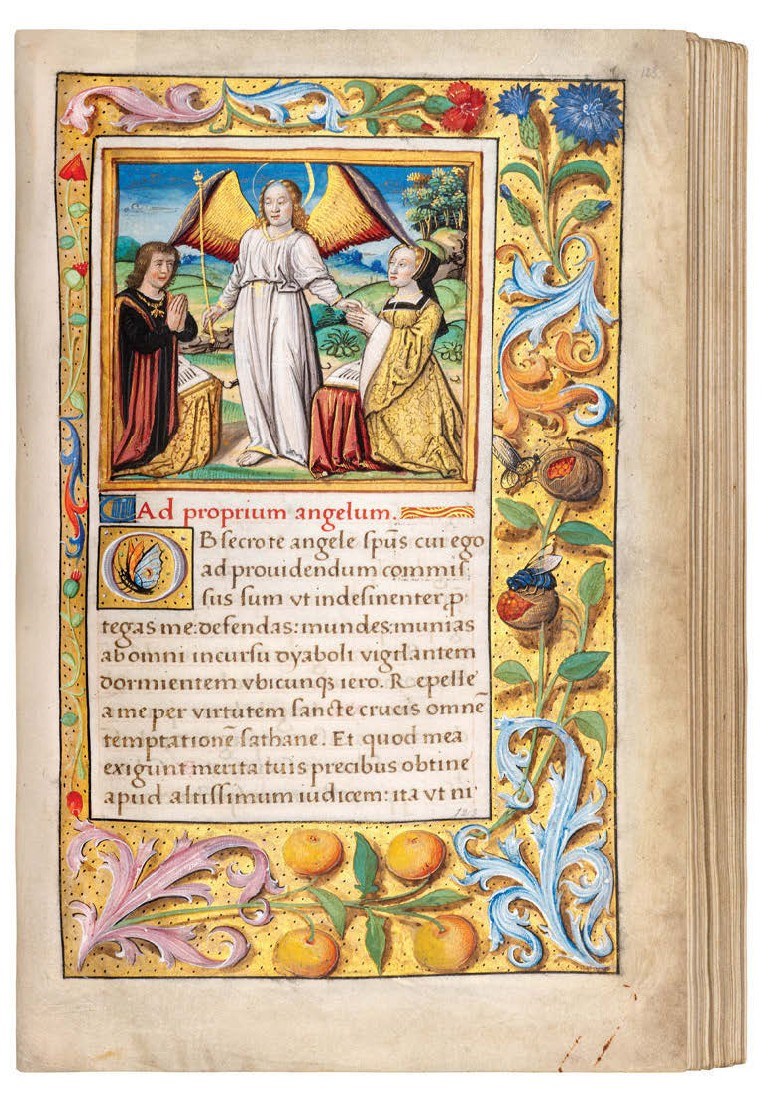 125
Ad proprium angelum.
OB secrote angele sp̄us cui ego
ad prouidendum commis
sus sum vt indesinenter ꝑ
tegas me: defendas: mundes: munias
ab omni incursu dyaboli vigilantem
dormientem vbicunqꝫ iero. Repelle
a me per virtutem sancte crucis omnē
temptationē sathane. Et quod mea
exigunt merita tuis precibus obtine
apud altissimum iudicem: ita vt ni